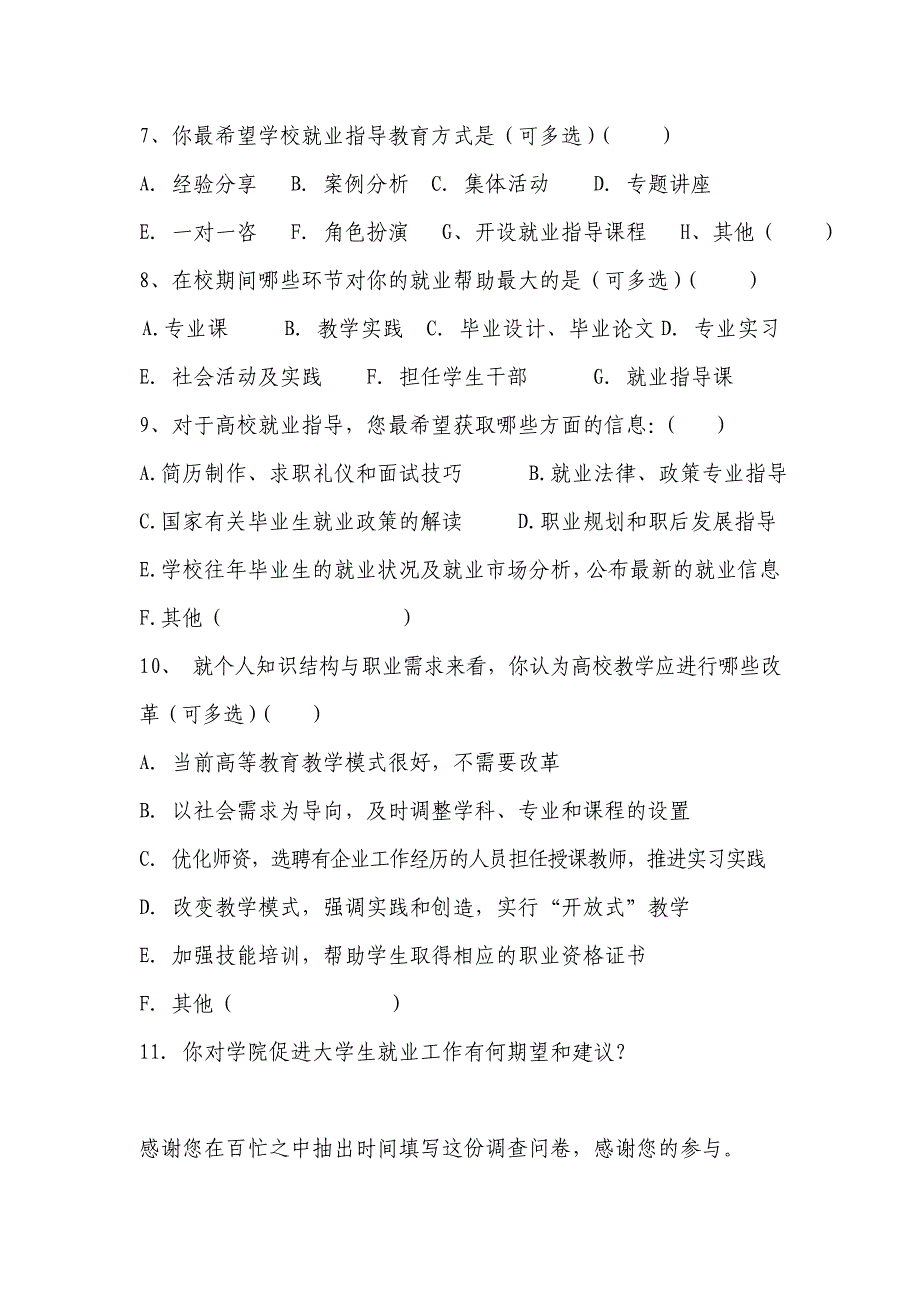 7、你最希望学校就业指导教育方式是(可多选)(    )
A. 经验分享  B. 案例分析  C. 集体活动   D. 专题讲座
E. 一对一咨  F. 角色扮演  G、开设就业指导课程  H、其他(    )
8、在校期间哪些环节对你的就业帮助最大的是(可多选)(    )
A.专业课    B. 教学实践  C. 毕业设计、毕业论文 D. 专业实习
E. 社会活动及实践   F. 担任学生干部    G. 就业指导课
9、对于高校就业指导,您最希望获取哪些方面的信息:(   )
A.简历制作、求职礼仪和面试技巧     B.就业法律、政策专业指导
C.国家有关毕业生就业政策的解读    D.职业规划和职后发展指导
E.学校往年毕业生的就业状况及就业市场分析,公布最新的就业信息
F.其他(                )
10、 就个人知识结构与职业需求来看,你认为高校教学应进行哪些改
革(可多选)(   )
A. 当前高等教育教学模式很好,不需要改革
B. 以社会需求为导向,及时调整学科、专业和课程的设置
C. 优化师资,选聘有企业工作经历的人员担任授课教师,推进实习实践
D. 改变教学模式,强调实践和创造,实行“开放式”教学
E. 加强技能培训,帮助学生取得相应的职业资格证书
F. 其他(              )
11. 你对学院促进大学生就业工作有何期望和建议?
感谢您在百忙之中抽出时间填写这份调查问卷,感谢您的参与。